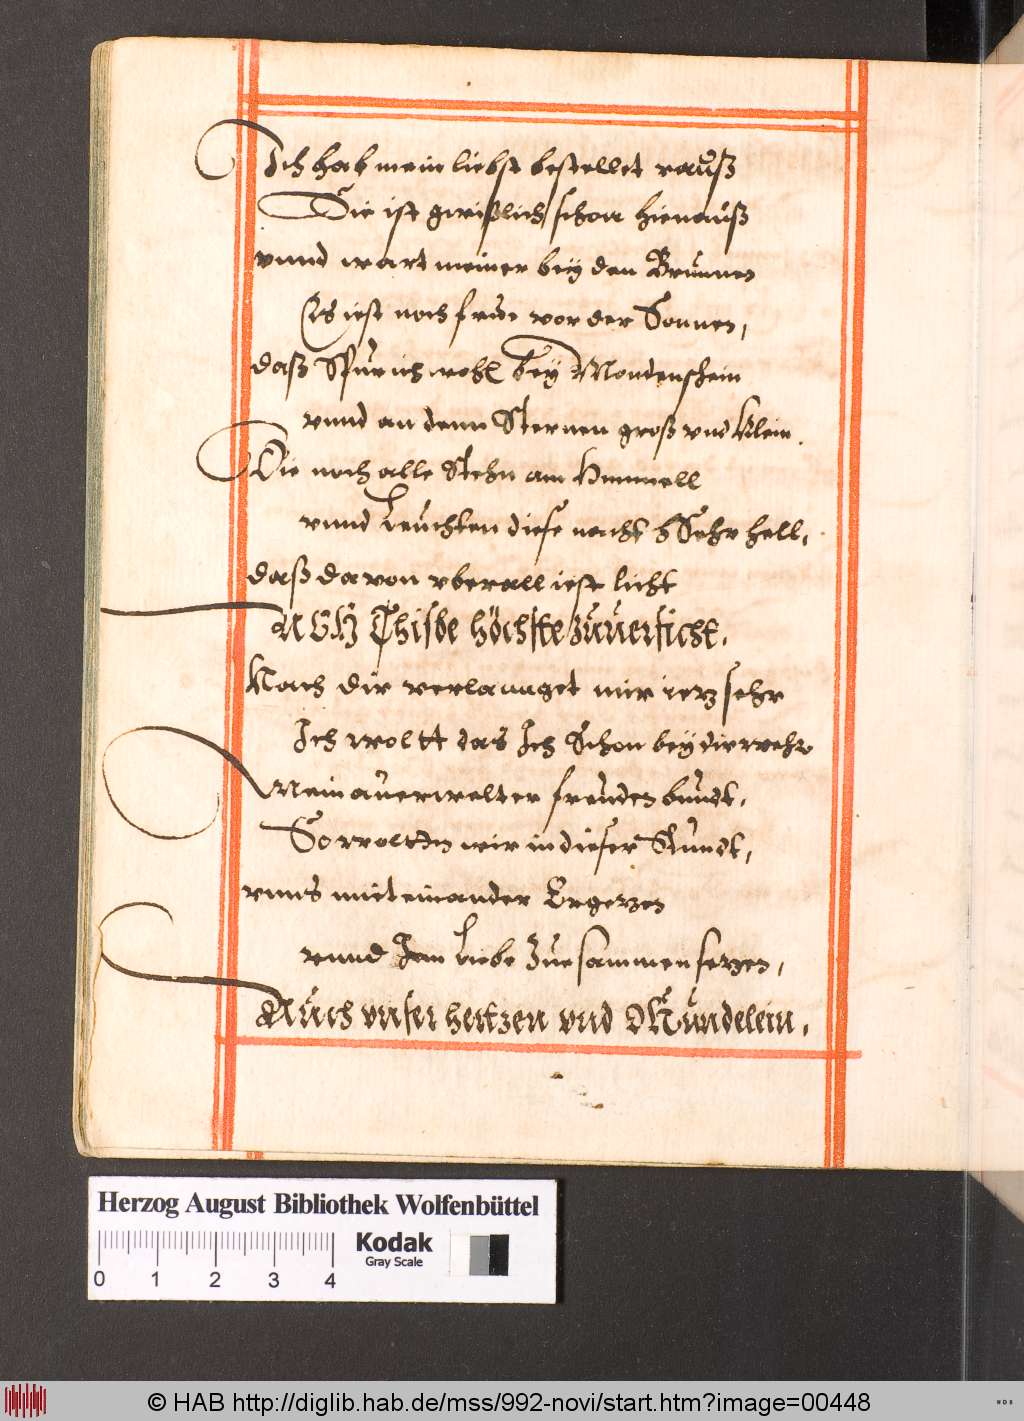 Ich hab mein liebst bestellet rauß
Sie ist gwißlich schon hienauß
vnnd wart meiner bey den Brunnen
Es iest noch frue vor der Sonnen,
daß Spur ich wohl bey Mondenschein
vnnd an denn Sternen groß vnd klein.
Die noch alle Stehn am Himmell
vnnd Leuchten diese nacht Sehr hell,
daß davon vberall iest licht
ACH Thisbe höchste zuuersicht.
Nach dir verlannget mir ietz sehr
Ich woltt das Ich Schon bey dir wehr
Mein auerwelter freuden bundt,
So wolttn wir in dieser Stundt,
vnns miteinander Ergetzen
vnnd Inn Liebe Zuesammen setzen,
Auch vnser hertzen vnd Mündelein.
Herzog August Bibliothek Wolfenbüttel
Kodak
Gray Scale
0 1 2 3 4
© HAB http://diglib.hab.de/mss/992-novi/start.htm?image=00448